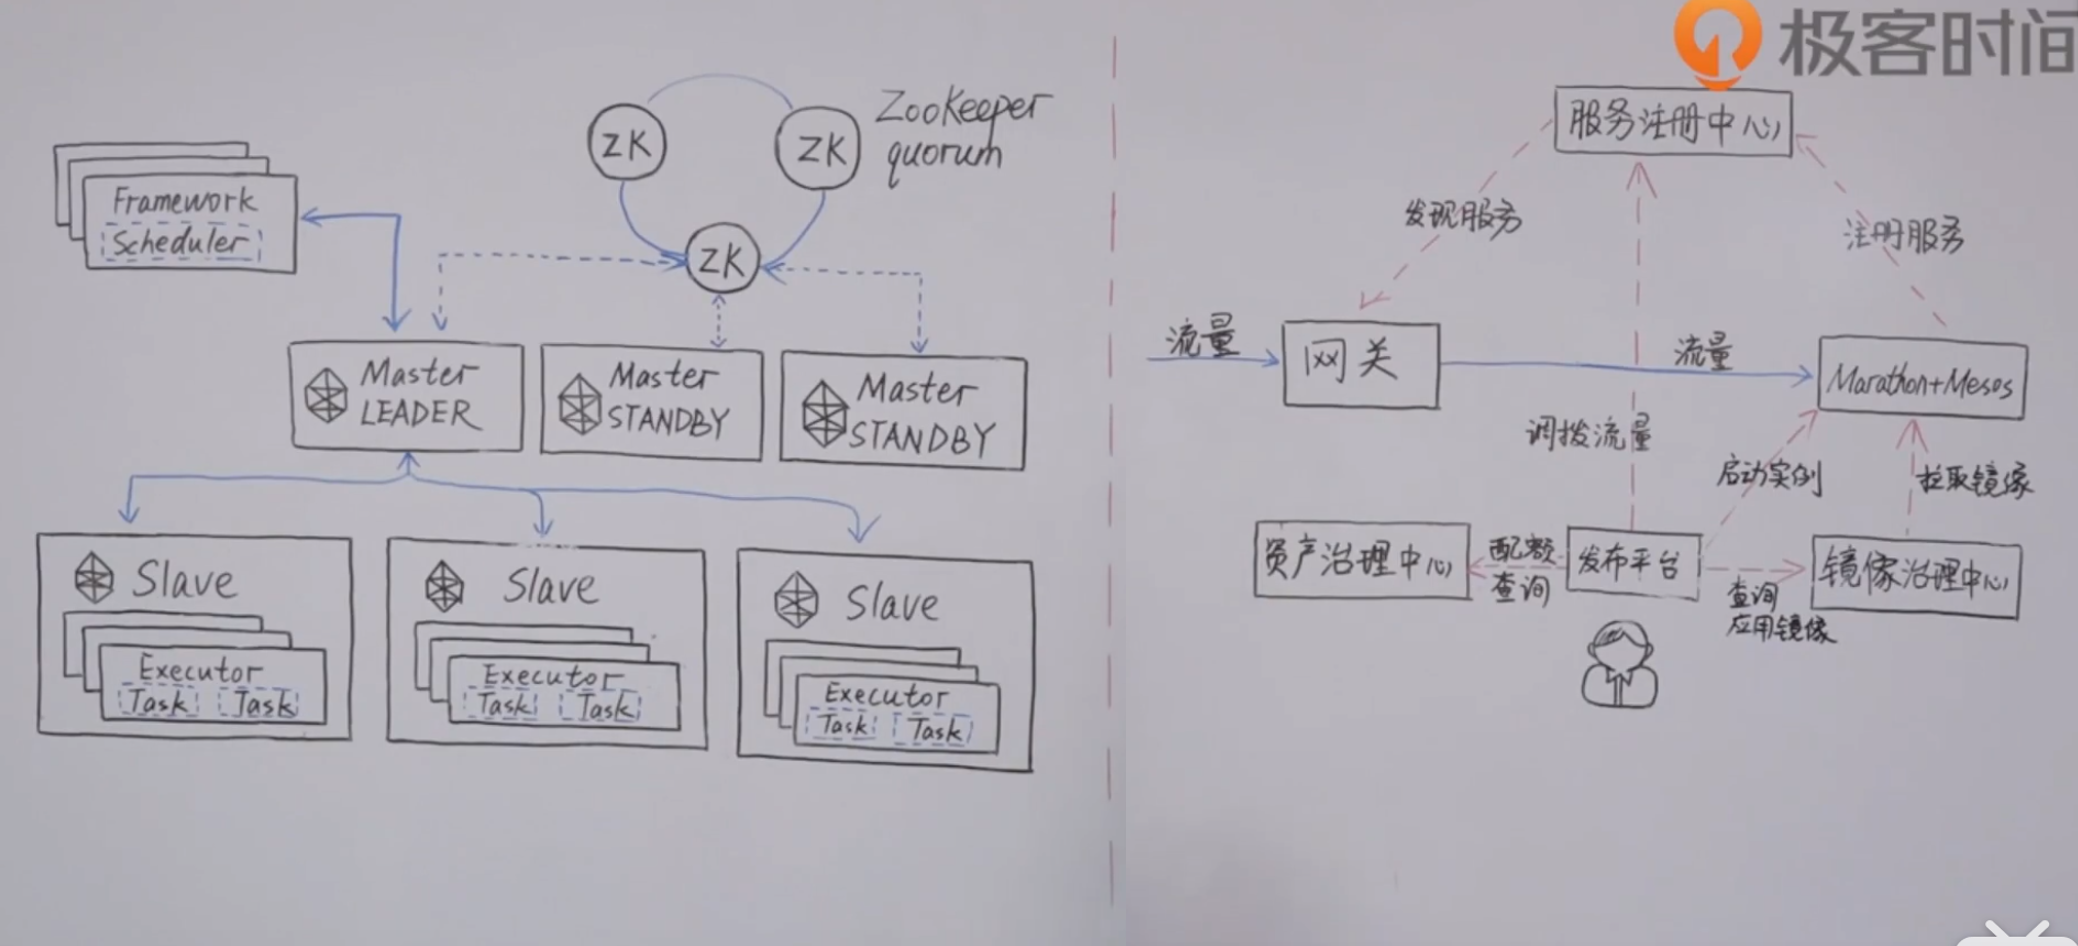 极客时间
ZK
ZK
ZooKeeper
quorum
ZK
Framework
Scheduler
Master
LEADER
Master
STANDBY
Master
STANDBY
Slave
Executor
Task
Task
Slave
Executor
Task
Task
Slave
Executor
Task
Task
服务注册中心
发现服务
注册服务
流量
网关
流量
Marathon+Mesos
调拨流量
启动实例
拉取镜像
资产治理中心
配额
查询
发布平台
查询
应用镜像
镜像治理中心